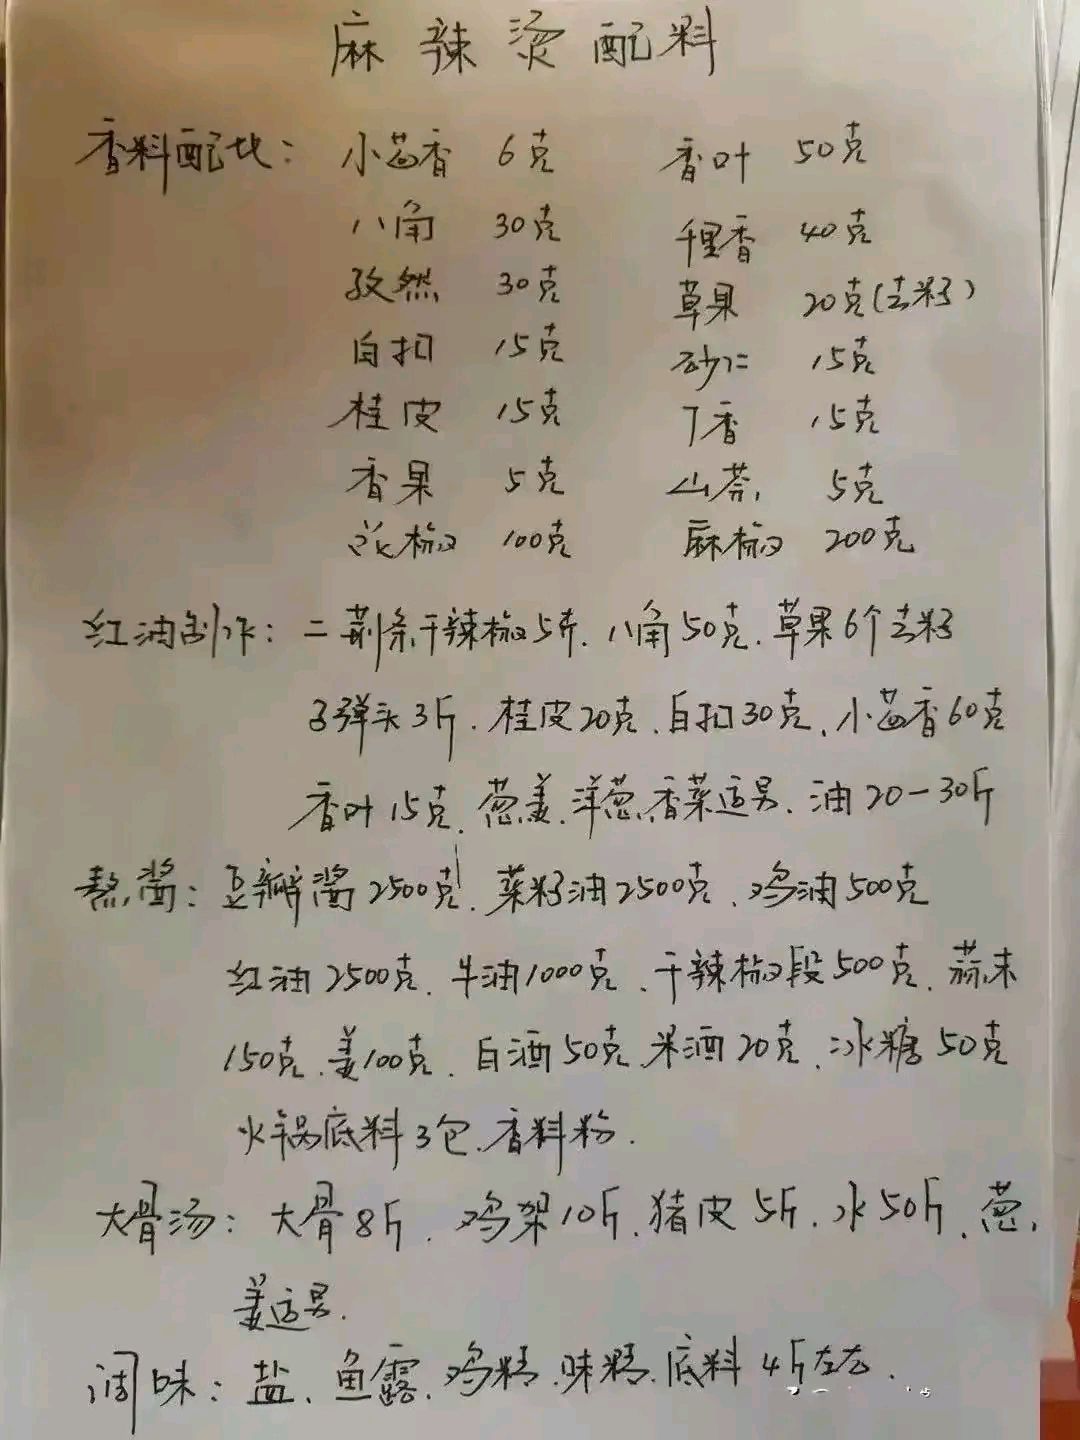 麻辣烫配料
香料配比: 小茴香 6克 香叶 50克
八角 30克 千里香 40克
孜然 30克 草果 20克(去籽)
白扣 15克 砂仁 15克
桂皮 15克 丁香 15克
香果 5克 山萘 5克
花椒 100克 麻椒 200克
红油制作: 二荆条干辣椒5斤、八角50克、草果6个去籽
子弹头3斤、桂皮20克、白扣30克、小茴香60克
香叶15克、葱、姜、洋葱、香菜适量、油20-30斤
熬酱: 豆瓣酱2500克、菜籽油2500克、鸡油500克
红油2500克、牛油1000克、干辣椒段500克、蒜末
150克、姜100克、白酒50克、米酒20克、冰糖50克
火锅底料3包、香料粉.
大骨汤: 大骨8斤、鸡架10斤、猪皮5斤、水50斤、葱、
姜适量.
调味: 盐、鱼露、鸡精、味精、底料4斤左右.